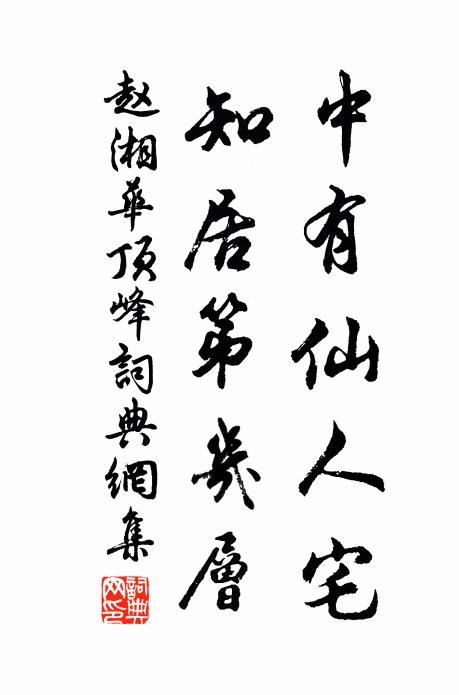 中有仙人宅
知居第幾層
赵湘華顶峰詞典網集
詞典
网印